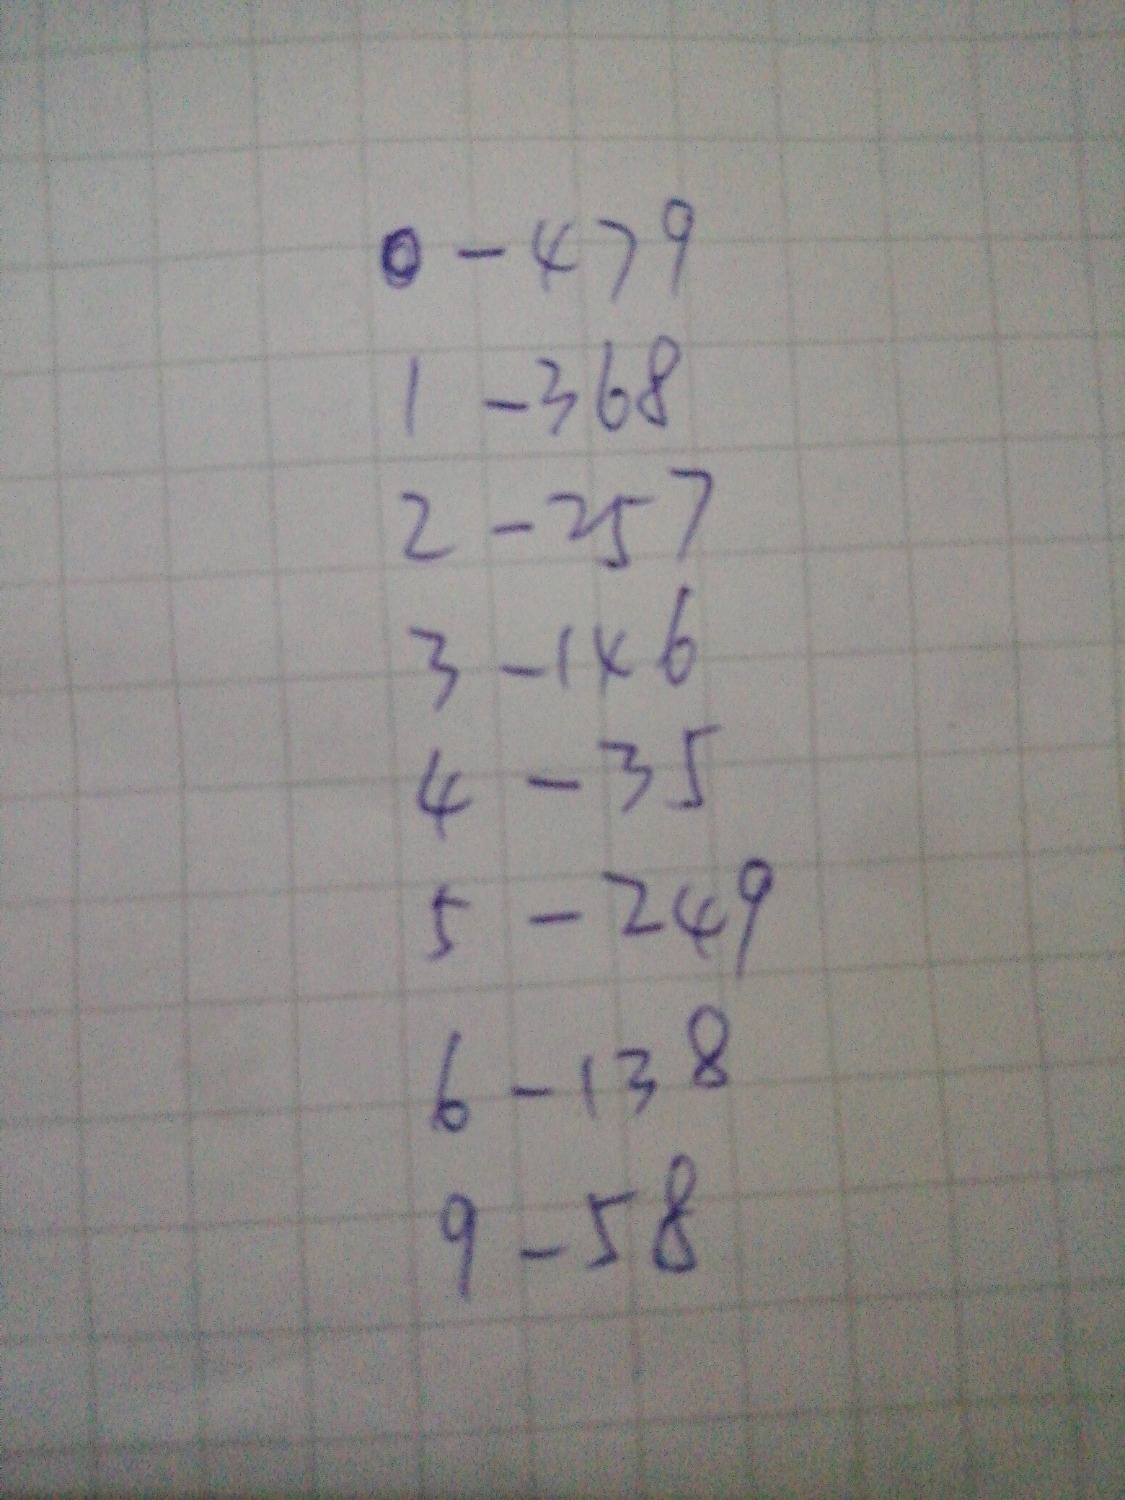 0 - 479
1 - 368
2 - 257
3 - 146
4 - 35
5 - 249
6 - 138
9 - 58